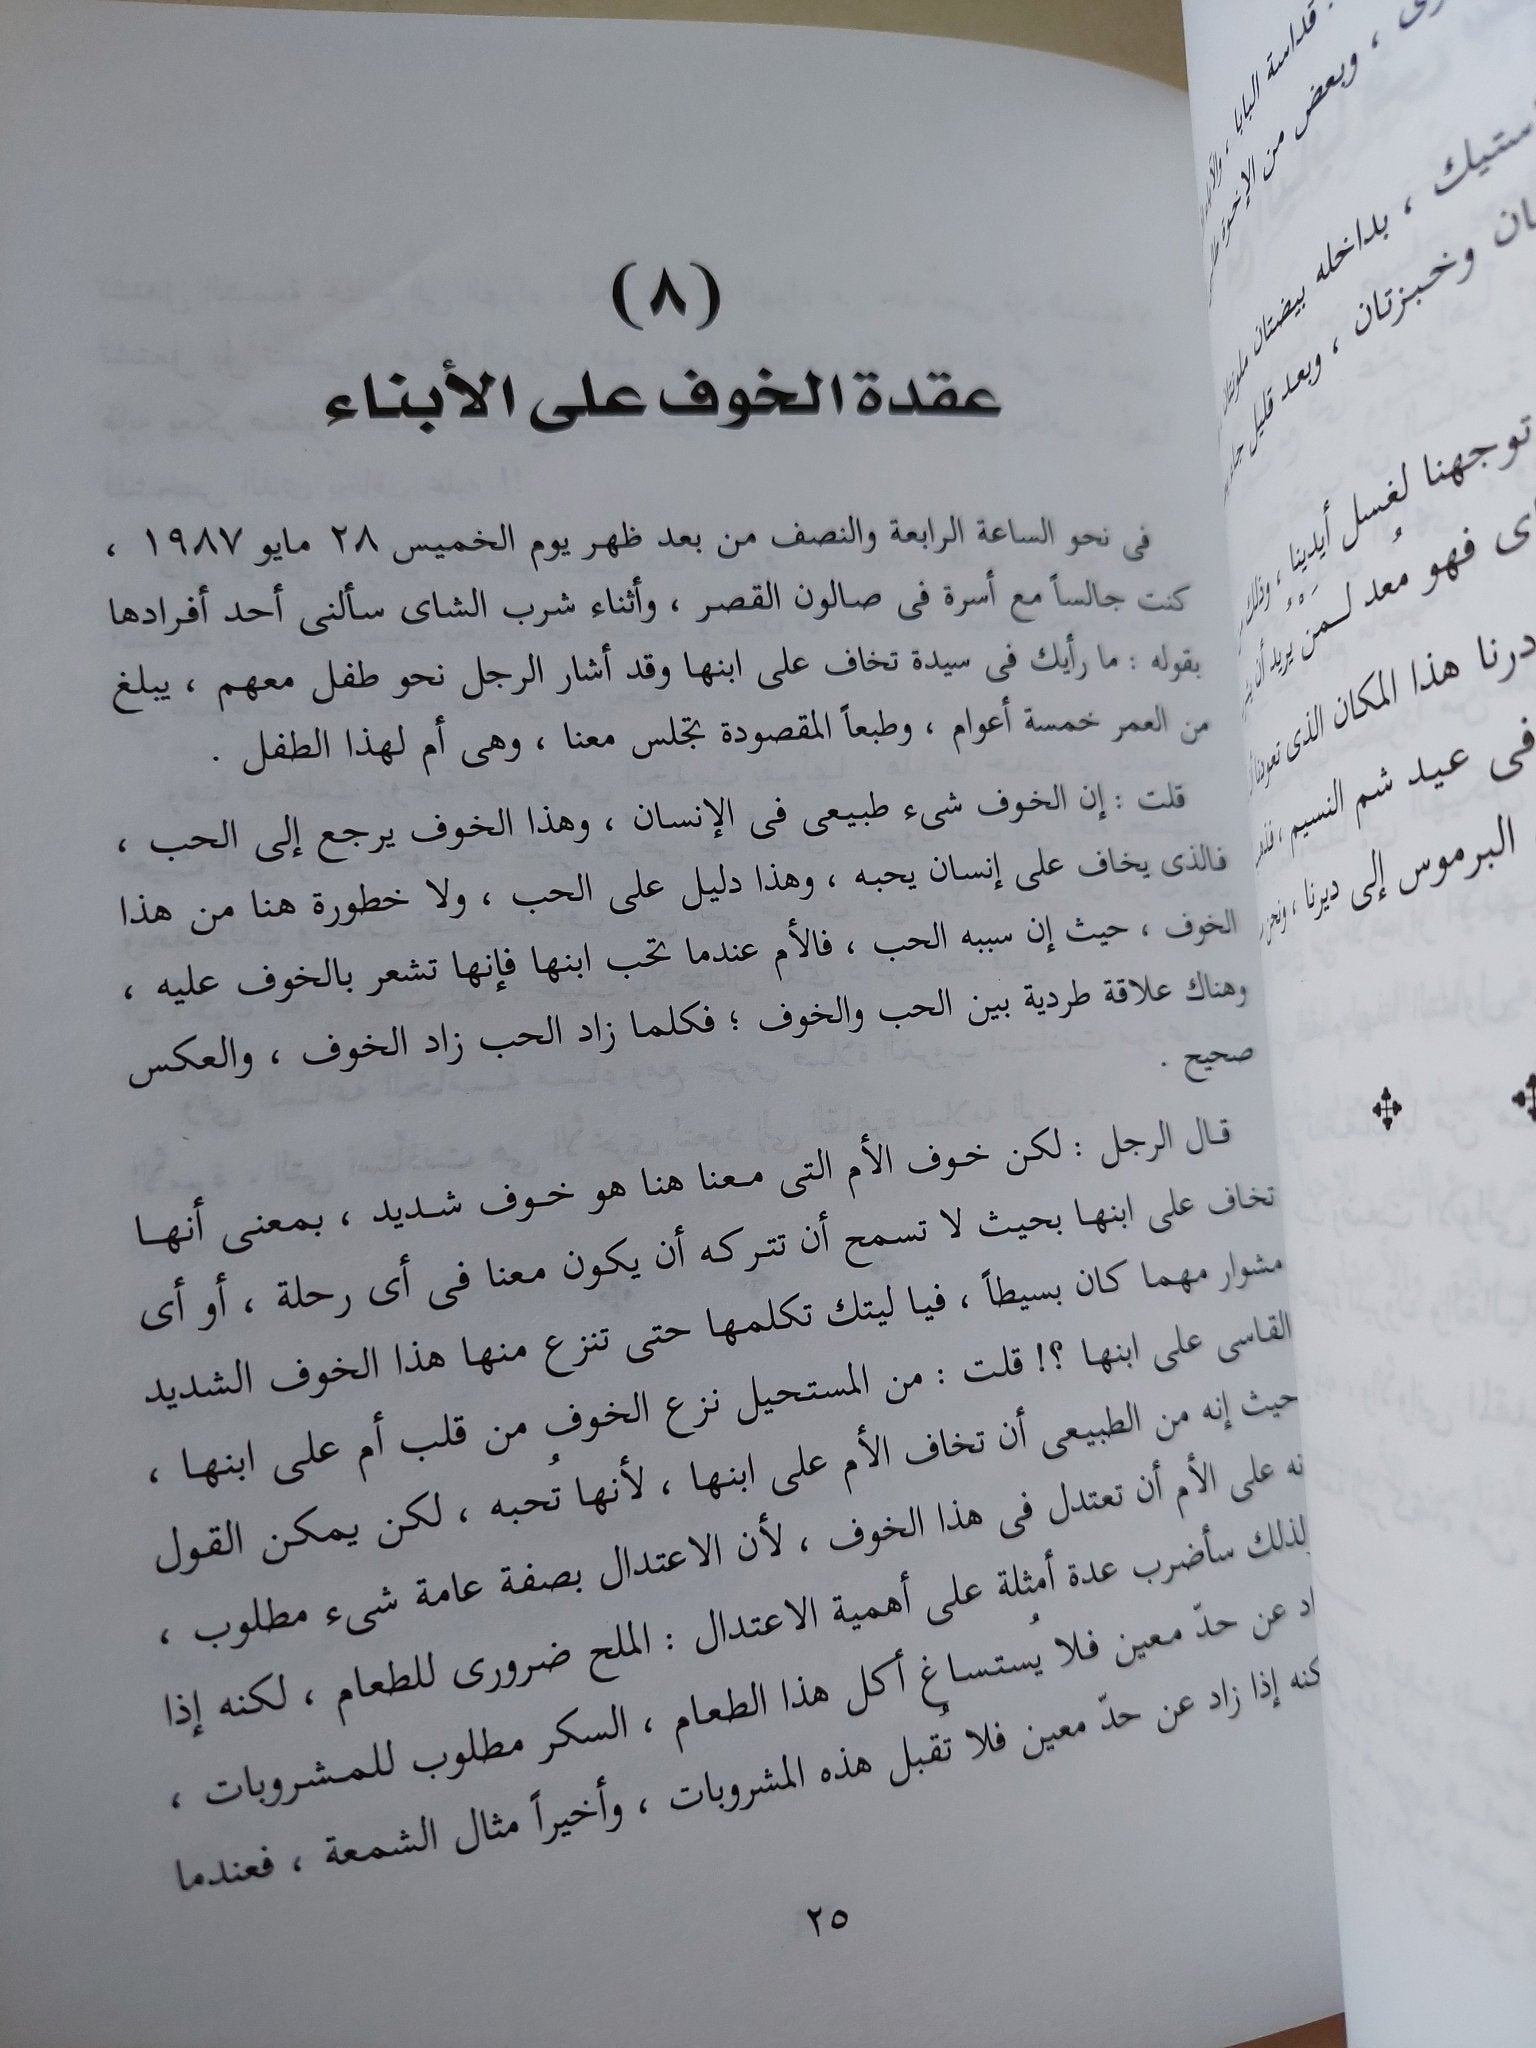 (٨)
عقدة الخوف على الأبناء
فى نحو الساعة الرابعة والنصف من بعد ظهر يوم الخميس ٢٨ مايو ١٩٨٧ ،
كنت جالساً مع أسرة فى صالون القصر ، وأثناء شرب الشاى سألنى أحد أفرادها
بقوله : ما رأيك فى سيدة تخاف على ابنها وقد أشار الرجل نحو طفل معهم ، يبلغ
من العمر خمسة أعوام ، وطبعاً المقصودة تجلس معنا ، وهى أم لهذا الطفل .
قلت : إن الخوف شىء طبيعى فى الإنسان ، وهذا الخوف يرجع إلى الحب ،
فالذى يخاف على إنسان يحبه ، وهذا دليل على الحب ، ولا خطورة هنا من هذا
الخوف ، حيث إن سببه الحب ، فالأم عندما تحب ابنها فإنها تشعر بالخوف عليه ،
وهناك علاقة طردية بين الحب والخوف ؛ فكلما زاد الحب زاد الخوف ، والعكس
صحيح .
قال الرجل : لكن خوف الأم التى معنا هنا هو خوف شديد ، بمعنى أنها
تخاف على ابنها بحيث لا تسمح أن تتركه أن يكون معنا فى أى رحلة ، أو أى
مشوار مهما كان بسيطاً ، فيا ليتك تكلمها حتى تنزع منها هذا الخوف الشديد
القاسى على ابنها ؟! قلت : من المستحيل نزع الخوف من قلب أم على ابنها ،
حيث إنه من الطبيعى أن تخاف الأم على ابنها ، لأنها تُحبه ، لكن يمكن القول
نه على الأم أن تعتدل فى هذا الخوف ، لأن الاعتدال بصفة عامة شىء مطلوب ،
لذلك سأضرب عدة أمثلة على أهمية الاعتدال : الملح ضرورى للطعام ، لكنه إذا
اد عن حدّ معين فلا يُستساغ أكل هذا الطعام ، السكر مطلوب للمشروبات ،
كنه إذا زاد عن حدّ معين فلا تُقبل هذه المشروبات ، وأخيراً مثال الشمعة ، فعندما
٢٥
قداسة البابا ،
، وبعض من الإخوة
ستيك ، بداخله بيضتان
ان وخبزتان ، وبعد قليل
توجهنا لغسل أيدينا ،
فهو مُعد لـمَن يُريد أن
درنا هذا المكان الذى تعودنا
فى عيد شم النسيم ،
البرموس إلى ديرنا ، ونحن